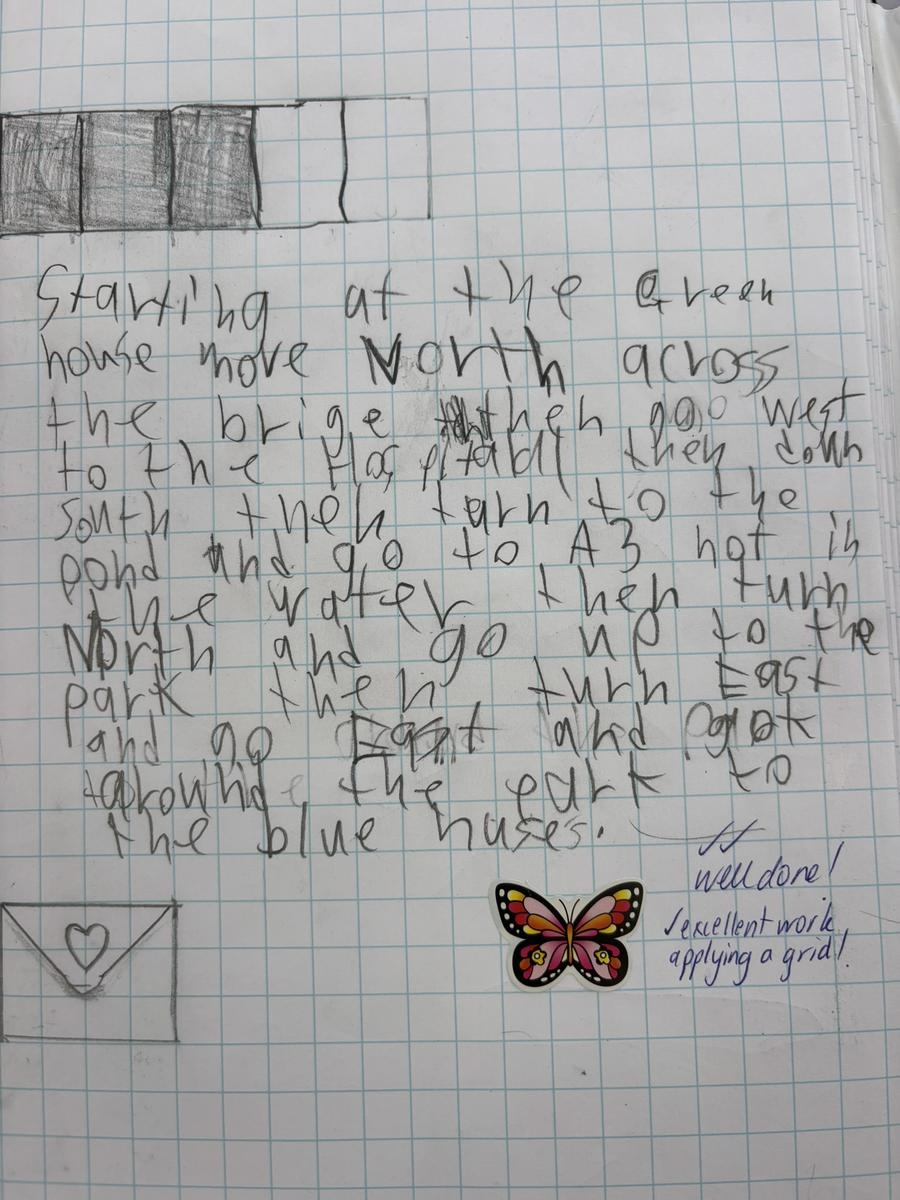 Starting at the Green
house move North across
the brige then go west
to the Hospitabl then down
south then turn to the
pond and go to A3 not in
the water then turn
North and go up to the
park then turn East
and go East and
around the park to
the blue huses.
well done!
excellent work
applying a grid!